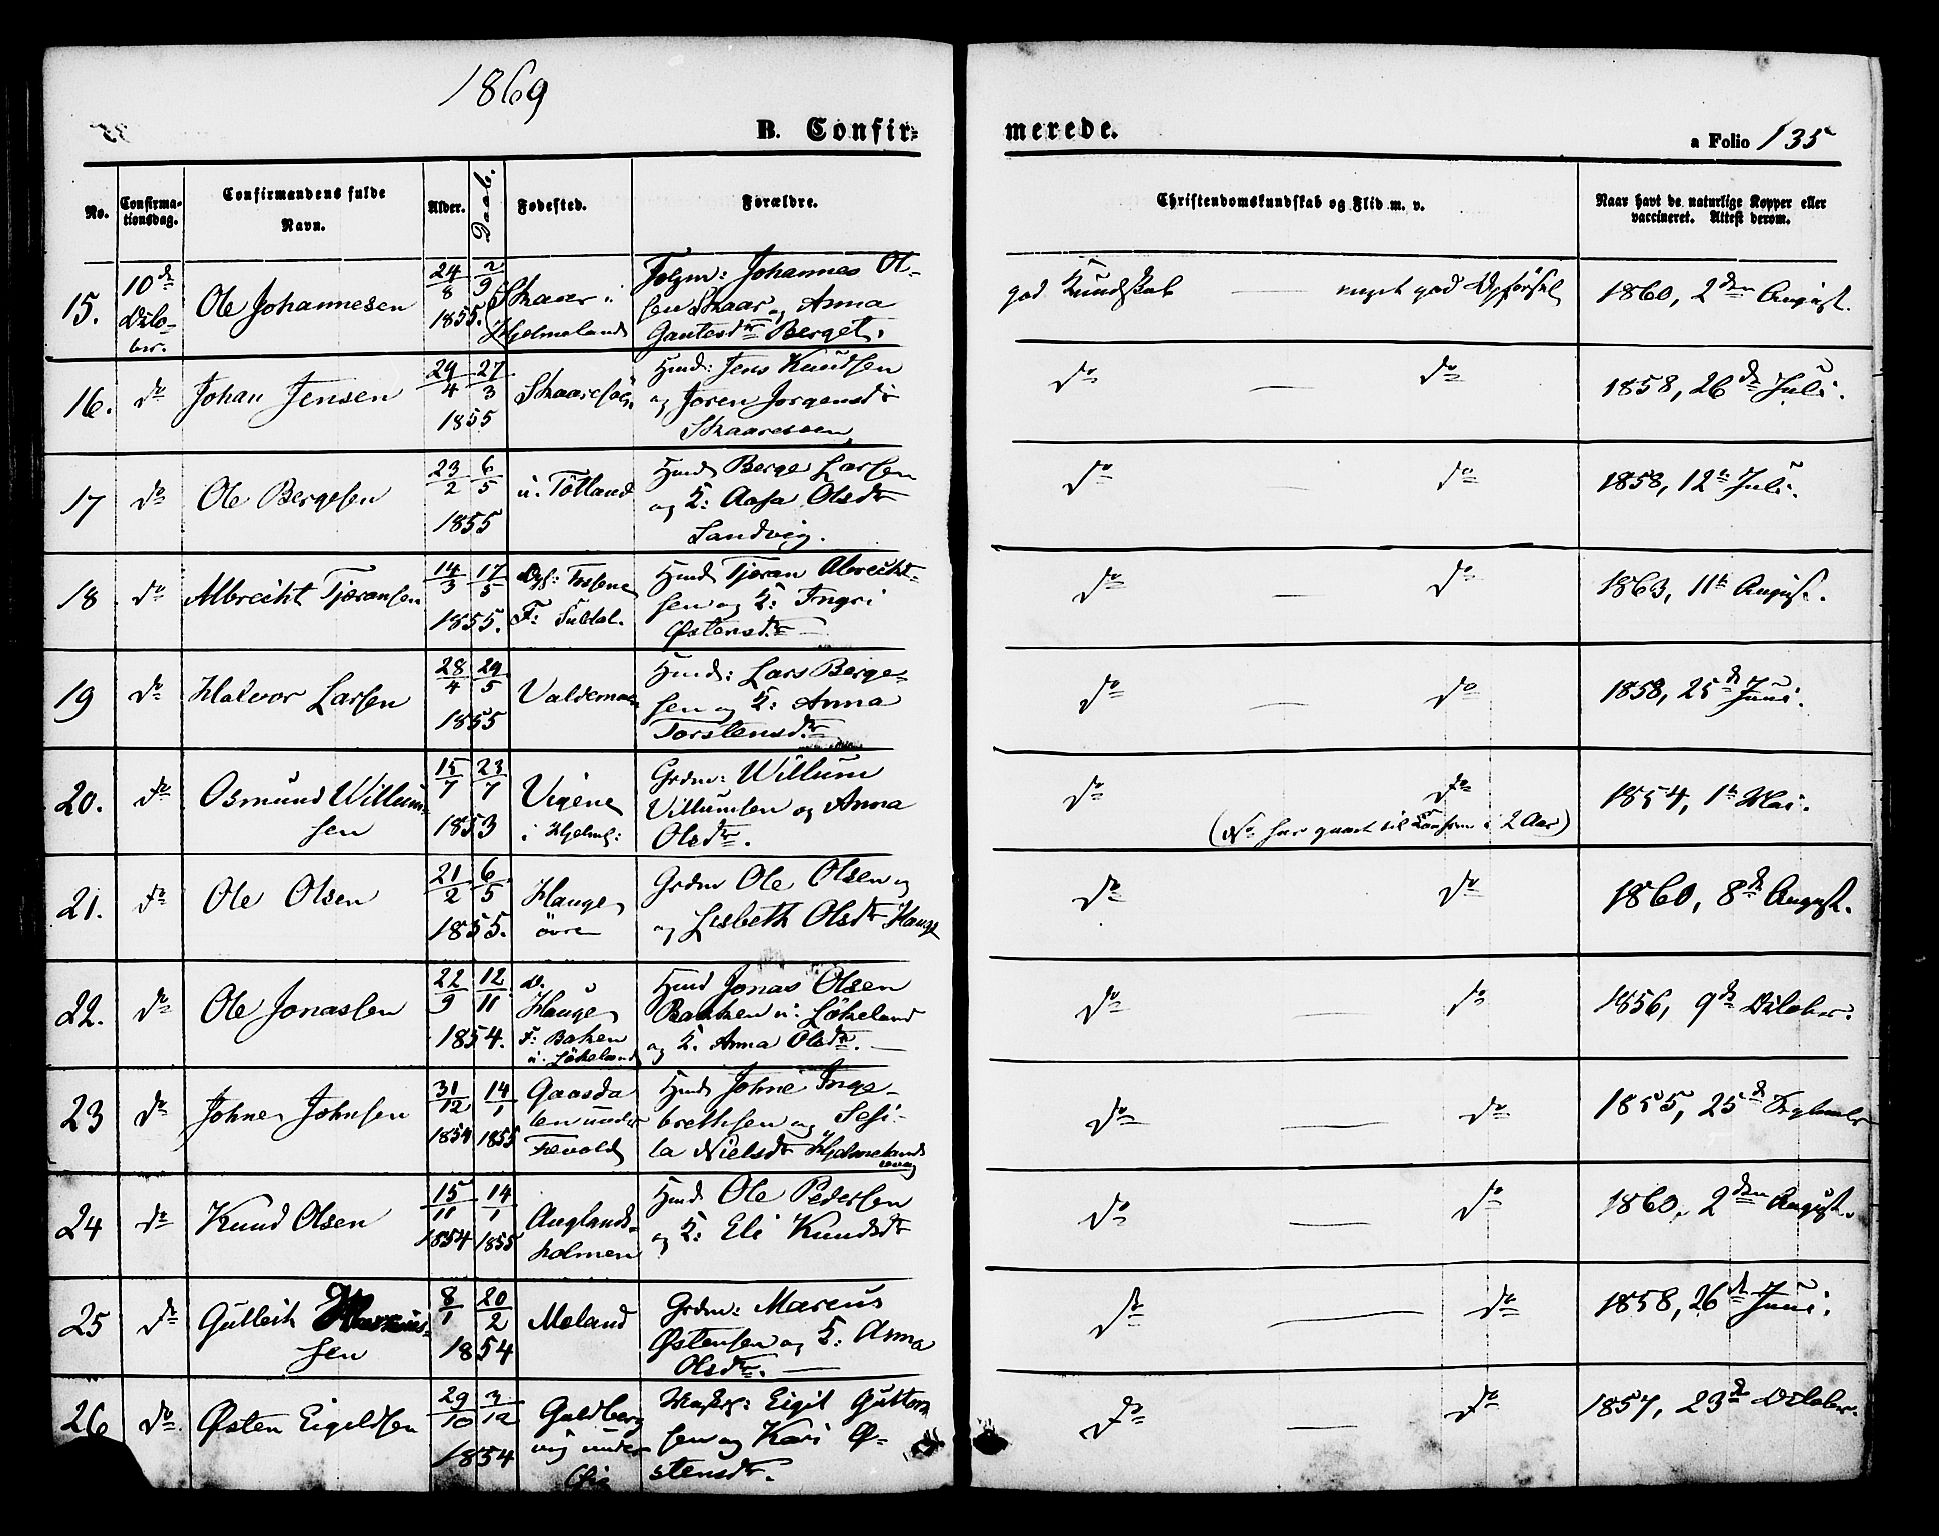 1869
B. Confir=
merede.
a Folio 135
No.
Confirma-
tionsdag.
Confirmandens fulde
Navn.
Alder.
Daab.
Fødested.
Forældre.
Christendomskundskab og Flid m. v.
Naar havt de naturlige Kopper eller
vaccineret. Attest derom.
15.
10de
Octo-
ber.
Ole Johannesen
24/8 2/9
1855.
Skaar i
Hjelmeland
Folgm: Johannes Ol-
sen Skaar og Anna
Gautesdtr Berget.
god Kundskab — meget god Opførsel
1860, 2den August.
16. do Johan Jensen
29/4 27/3
1855
Hmd: Jens Knudsen
og Joren Jorgensdtr
do — do
1858, 26de Juli.
17 do Ole Bergesen
23/2 6/5
1855
u. Totland
Hmd Berge Larsen
og K: Aasa Olsdtr
Sandvig.
do do
1858, 12te Juli.
18 do Albrecht Tjæransen
14/3 17/5
1855.
F: Suldal.
Hmd Tjæran Albrecht-
sen og K: Ingri
Østensdtr —
do — do
1863, 11te August.
19 do Halvor Larsen
28/4 29/5
1855
Hmd: Lars Berge-
sen og K: Anna
Torstensdtr
do — do
1858, 25de Juni.
20. do Osmund Willum-
sen
15/7 23/7
1853
Vigene
i Hjelml:
Grdm: Willum
Villumsen og Anna
Olsdtr.
do do
1854, 1te Mai.
21. do Ole Olsen
21/2 6/5
1855.
Hauge
øvre
Grdm Ole Olsen og
og Lisbeth Olsdtr Hauge
do do
1860, 8de August.
22. do Ole Jonassen
22/9 12/11
1854.
Hauge
F: Bakken
u. Løkeland
Hmd Jonas Olsen
Bakken u: Løkeland
og K. Anna Olsdtr. —
do — do
1856, 9de October.
23 do Johne Johnsen
31/12 14/1
1854 1855
Hmd Johne Inge-
brethsen og Sesi-
la Nielsdtr Hjelmelands
vaag
do — do
1855, 25de September
24 do Knud Olsen
15/11 14/1
1854 1855
Auglands-
holmen
Hmd Ole Pedersen
og K: Eli Knudsdtr
do — do
1860, 2den August.
25 do Gutleik
sen
8/1 20/2
1854
Meland
Grdm: Marcus
Østensen og K: Anna
Olsdtr. —
do — do
1858, 26de Juni.
26 do Østen Eigeldsen
29/10 3/12
1854
Guldberg
vig under
sen og Kari Ø-
stensdtr.
do — do
1857, 23de October.